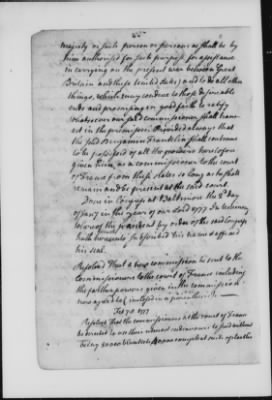 majesty or such person or persons as shall be by
him authorised for such purpose for assistance
in carrying on the present war between Great
Britain and these united states; and to do all other
things, which may conduce to those desireable
ends and promising in good faith to ratify
whatsoever our said commissioner shall trans
act in the premisses. Provided always that
the said Benjamin Franklin shall continue
to be possessed of all the powers heretofore
given him, as a commissioner to the court
of France from these states so long as he shall
remain and be present at the said court.
Done in Congress at Baltimore the day
of Jany in the year of our Lord 1777. In testimony
whereof the president by order of the said Congress
hath hereunto subscribed his name & affixed
his seal.
Resolved That a new commission be sent to the
Commissioners to the court of France including
the farther powers given in the commission
now agreed to
Feb 1777
Resolved That the commissioners at the court of France
be directed to use their utmost endeavours to